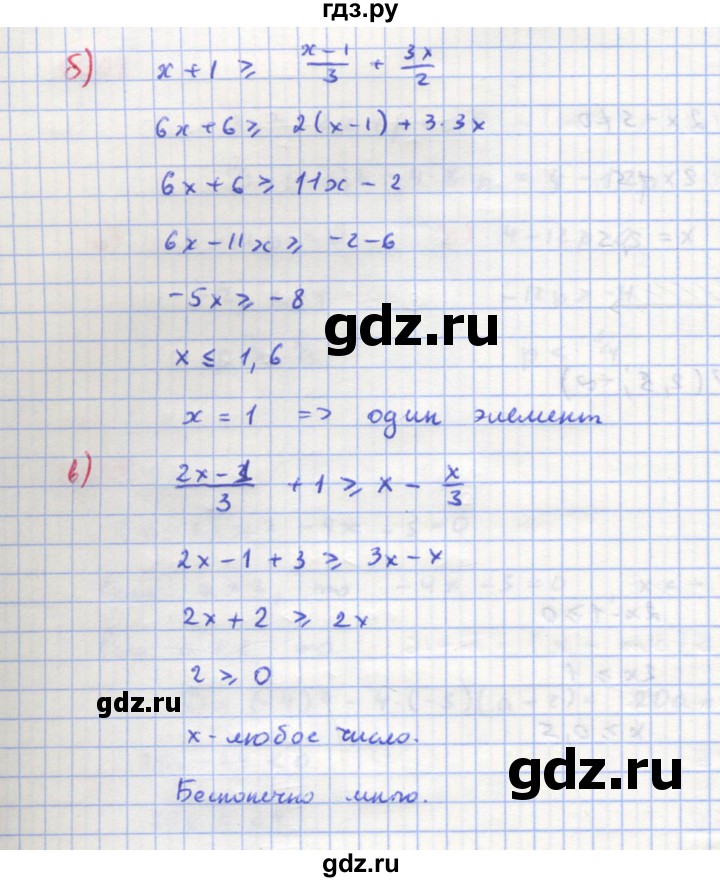 гдз.ру
б) x + 1 ≥ (x-1)/3 + 3x/2
6x + 6 ≥ 2(x-1) + 3·3x
6x + 6 ≥ 11x - 2
6x - 11x ≥ -2 - 6
-5x ≥ -8
gdz.ru
x ≤ 1,6
x = 1 => один элемент
в) (2x-1)/3 + 1 ≥ x - x/3
2x - 1 + 3 ≥ 3x - x
2x + 2 ≥ 2x
2 ≥ 0
gdz.ru
x - любое число.
gdz.ru
Бесконечно много.
gdz.ru